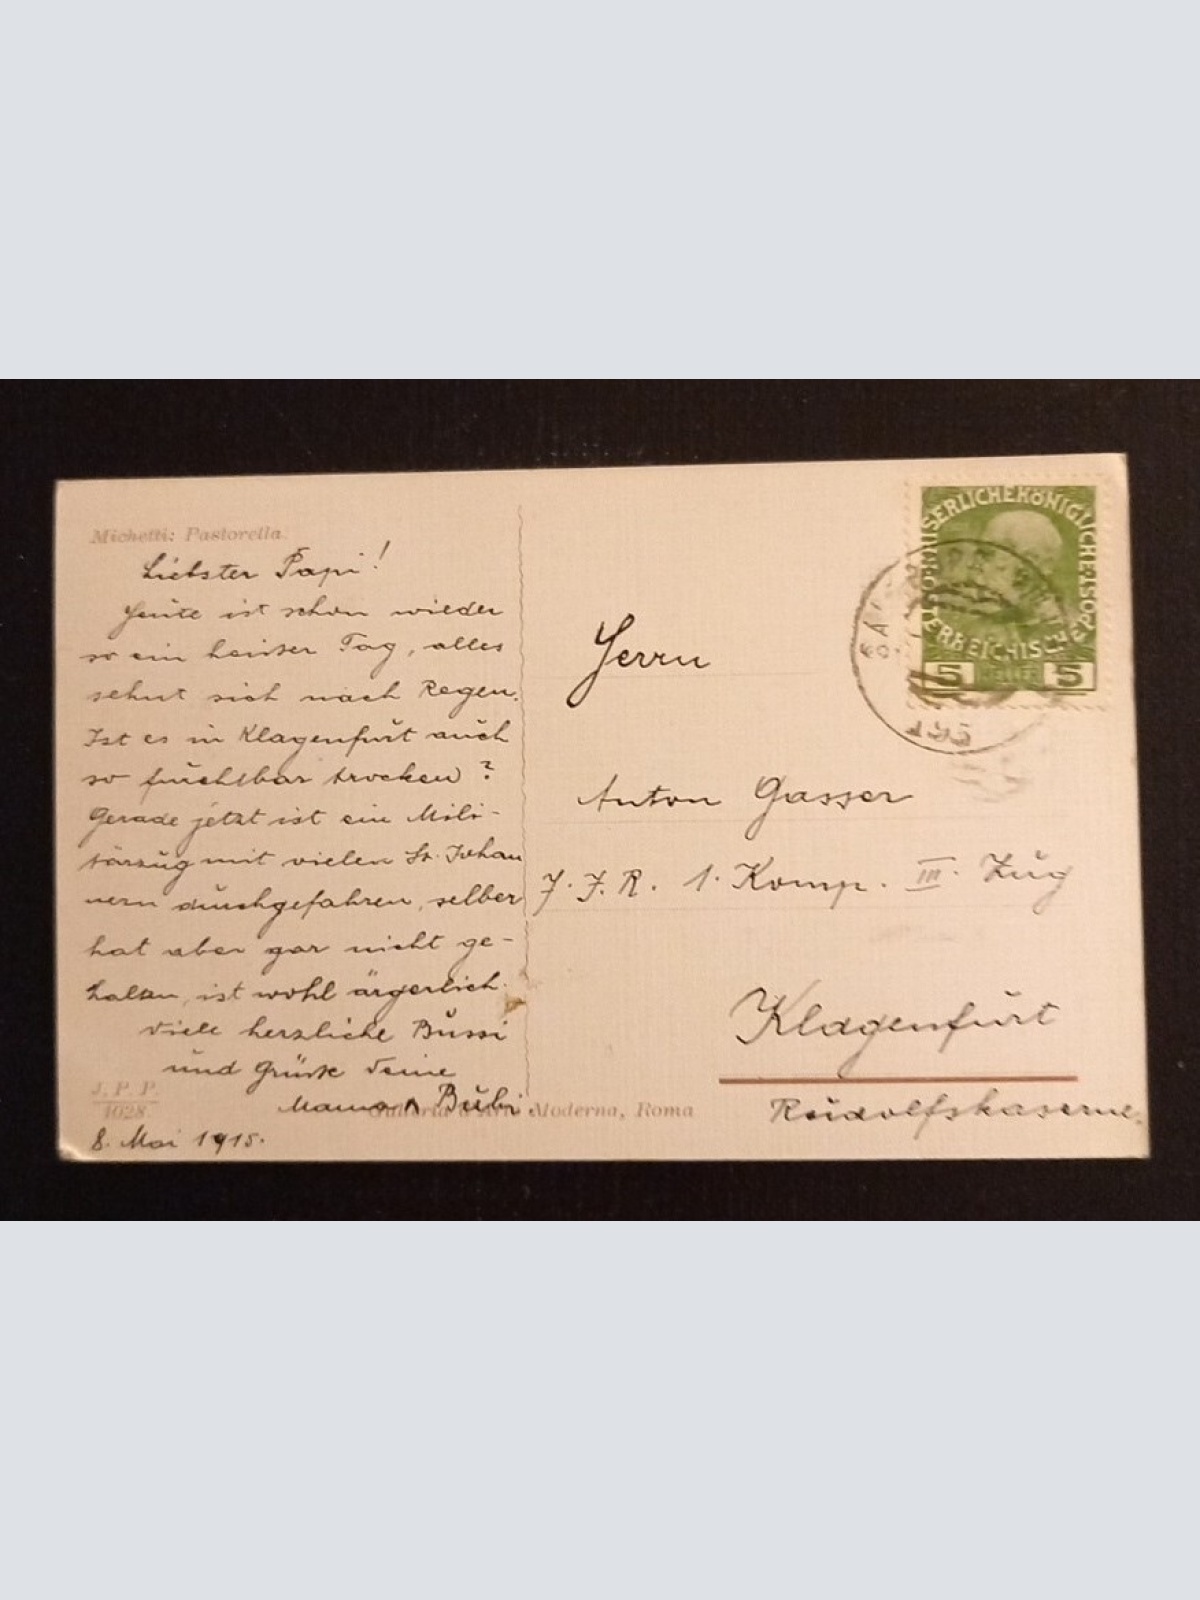 Michetti: Pastorella.
Liebster Papi!
Heute ist schon wieder
so ein heisser Tag, alles
sehnt sich nach Regen.
Ist es in Klagenfurt auch
so furchtbar trocken?
Gerade jetzt ist ein Mili-
tärzug mit vielen St. Johan
nern durchgefahren, selber
hat aber gar nicht ge-
halten, ist wohl ärgerlich.
Viele herzliche Bussi
und Grüsse Deine
Mama Bubi.
8. Mai 1915.
J. P. P.
1028.
Moderna, Roma
KAISERLICHE KÖNIGLICHE ÖSTERREICHISCHE POST
5 5
Herrn
Anton Gasser
J. R. 1. Komp. III. Zug
Klagenfurt
Rudolfskaserne.